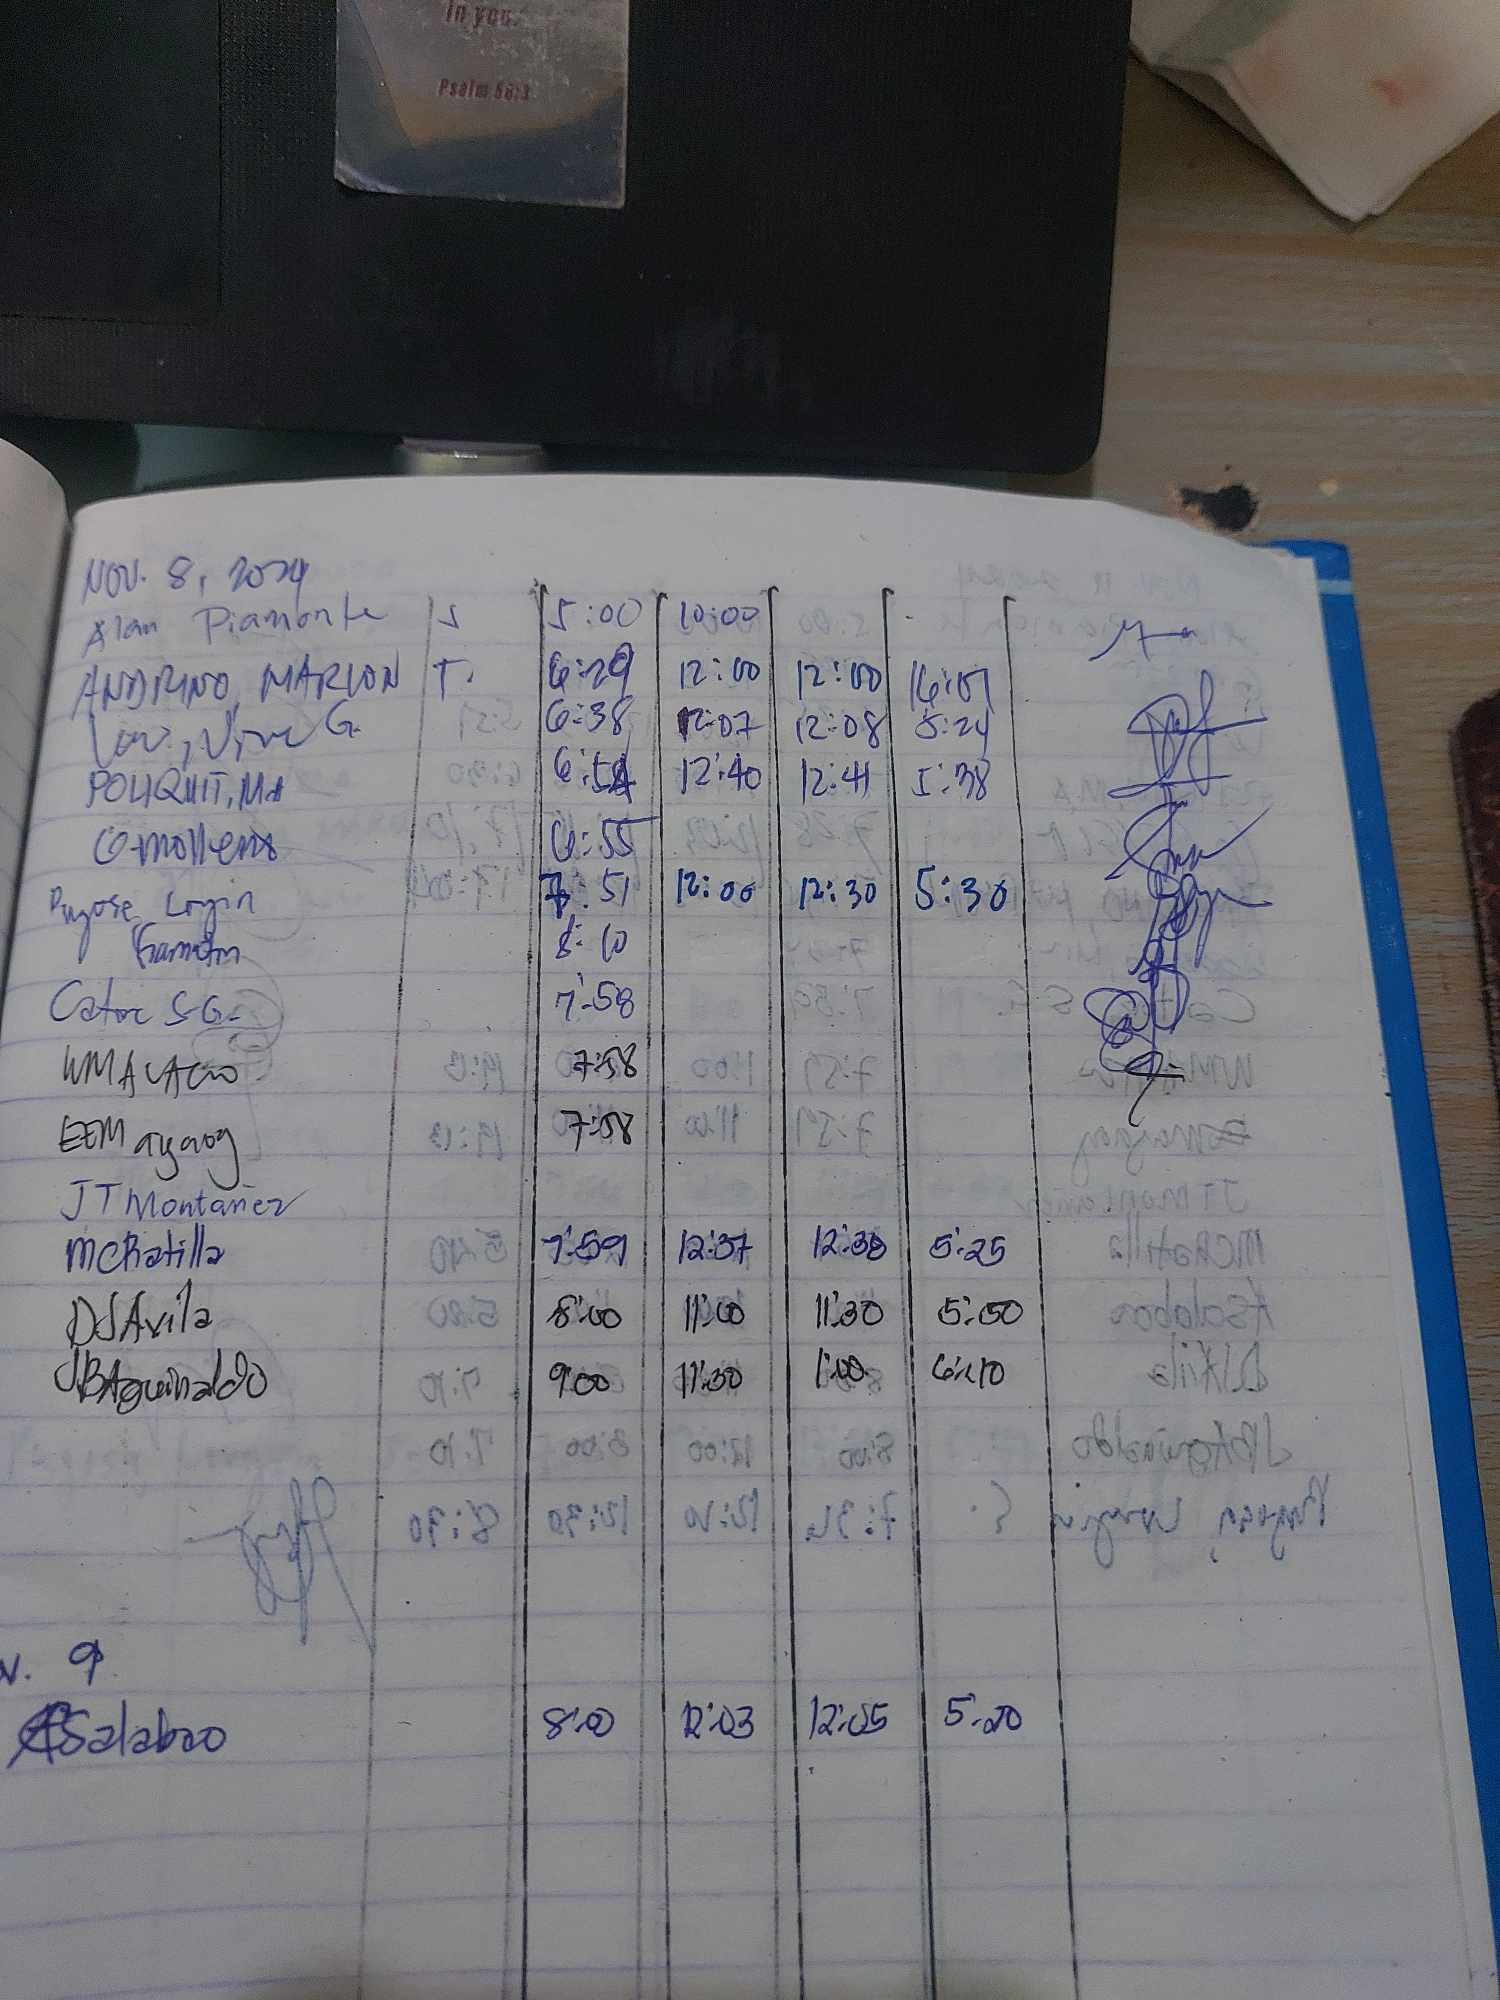 in you.
Psalm 56:3
NOV. 8, 2024
Alan Piamonte S 5:00 10:00
ANDRINO, MARLON T. 6:29 12:00 12:00 16:07
G. 6:38 12:07 12:08 5:24
POLIQUIT, MA 6:54 12:40 12:41 5:38
6:55
Login 7:51 12:00 12:30 5:30
8:10
Cator S.G. 7:58
7:58
7:58
JT Montañez
MCRatilla 7:59 12:37 12:38 5:25
DJAvila 8:00 11:00 11:30 5:50
JBAguinaldo 9:00 11:30 1:00 6:10
v. 9
ASalabao 8:00 12:03 12:05 5:20